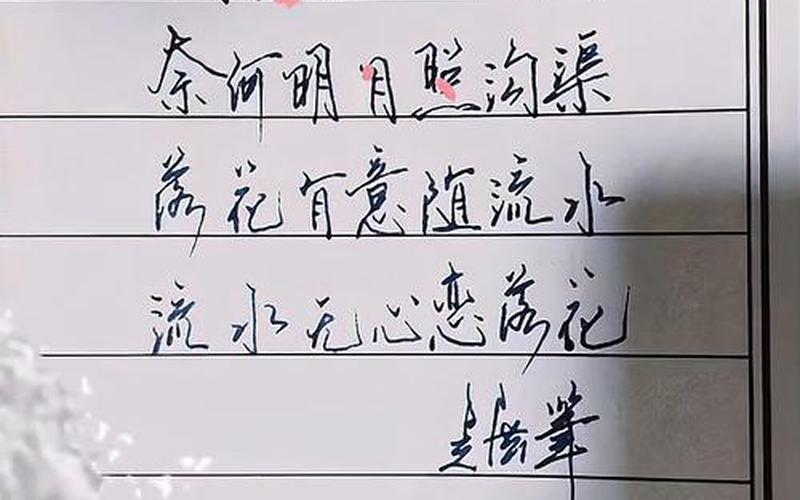 奈何明月照沟渠
落花有意随流水
流水无心恋落花